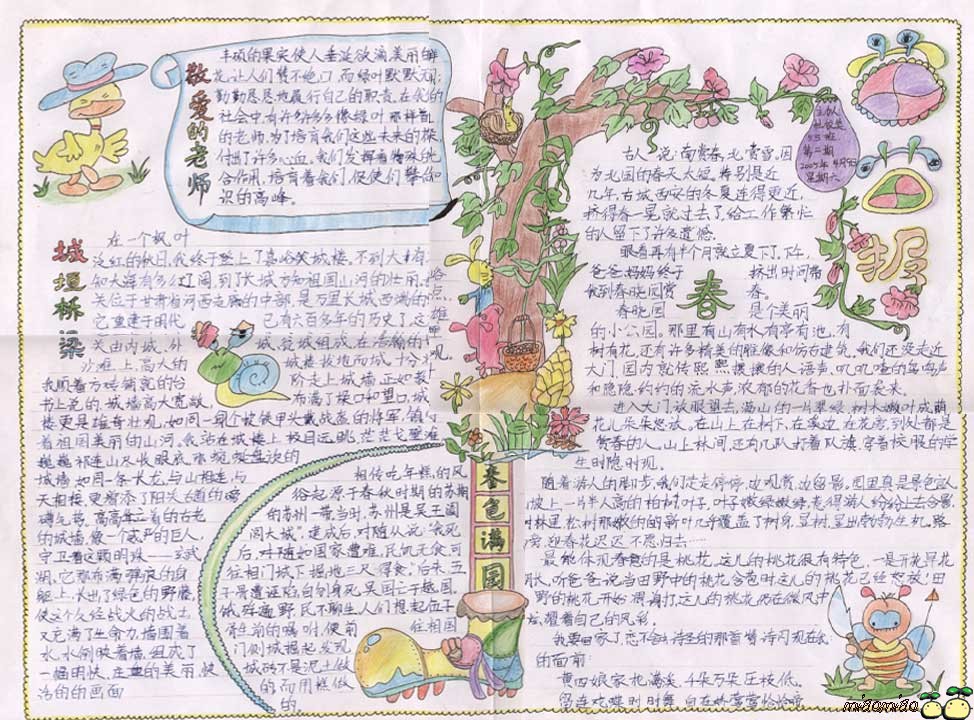 敬爱的老师
丰硕的果实使人垂涎欲滴,美丽的鲜
花让人们赞不绝口,而绿叶默默无闻
勤勤恳恳地履行自己的职责。在我们
社会中,有许许多多像绿叶那样普
的老师,为了培育我们这些未来的栋
付出了许多心血。我们发挥着特殊
合作用,培育着我们,促使们攀
识的高峰。
城垣桥梁
在一个枫叶
深红的秋日,我终于登上了嘉峪关城楼,不到大
知大海有多么辽阔,到了长城方知祖国山河的壮丽。
关位于甘肃省河西走廊的中部,是万里长城西端的
它重建于明代
已有六百多年的历史了。这
关由内城、外
城、瓮城组成。在浩瀚的
沙滩上,高大的
城楼拔地而城,十分
我顺着方砖铺就的台
阶走上城墙,正如教
书上说的,城墙高大宽敞,
布满了垛口和望口,城
楼更是雄奇壮观,如同一身个披铁甲头戴战盔的将军,镇守
着祖国美丽的山河。我站在城楼上极目远眺,茫茫戈壁
巍巍祁连山尽收眼底,
城墙如同一条长龙,与山相连,与
天相接,更增添了阳关古道的磅
礴气势。高高耸立着的古老
的城墙,像一个威严的巨人,
守卫着这颗明珠——玄武
湖。它都布满弹痕的身
躯上,长出了绿色的野藤,
使这个久经战火的战士
又充满了生命力,墙围着
水,水倒映着墙,组成了
一幅明快、庄重的美丽,
洁的的画面
相传吃年糕的风
俗起源于春秋时期的苏
的苏州一带,当时,苏州是吴王阖
闾大城”,建成后,对随从说:“我死
后,对随如国家遭难,民饥无食,可
往相门城下掘地三尺得食。”后来,五
子胥遭诬陷自刎身死,吴国亡于越国,
城残碎遍野,民不聊生,人们想起伍子
胥生前的嘱咐,便前
往相国
门侧城掘起,发现
城砖不是泥土做
的,而用糕做
的。
春色满园
主办人
五5班
第二期
2005年4月9日
星期六
春
古人说:“南赏春,北赏雪。因
为北国的春天太短,特别是近
几年,古城西安的冬夏连得更近,
挤得春一晃就过去了,给工作繁忙
的人留下了许多遗憾。
眼看再有半个月就立夏了。下午,
爸爸妈妈终于
挤出时间带
我到春晓园赏
春。
春晓园
是个美丽
的小公园。那里有山有水,有亭有池,有
树有花,还有许多精美的雕像和仿古建筑。我们还没走近
大门,园内就传熙熙攘攘的人语声、叽叽喳的鸟鸣声
和隐隐约约的流水声,浓郁的花香也扑面袭来。
进入大门,放眼望去,满山的一片翠绿,树木嫩叶成荫
花儿朵朵怒放。在山上,在树下,在溪边,在花旁,到处都是
赏春的人,山上林间,还有几队打着队旗,穿着校服的学
生时隐时现。
随着游人的脚步,我们走走停停,边观赏,边留影。园里真是景色
坡上,一片半人高的柏树叶子,叶子嫩绿嫩绿,惹得游人纷纷上去合影
树林里,松树那嫩的的的新叶几乎覆盖了树身,呈树,呈出勃勃生机。路
旁,迎春花迟迟不愿归去……
最能体现春意的是桃花。这儿的桃花很有特色,一是开花早花
期长,听爸爸说,当田野中的桃花含苞时,这儿的桃花已经怒放!田
野的桃花开始凋谢了,这儿的桃花仍在微风中
炫耀着自己的风彩。
我要回家了,忽不会,诗圣的那首诗闪现在我
的面前:
黄四娘家花满溪,千朵万朵压枝低。
留连戏蝶时时舞,自在娇莺恰恰啼
miaomiao